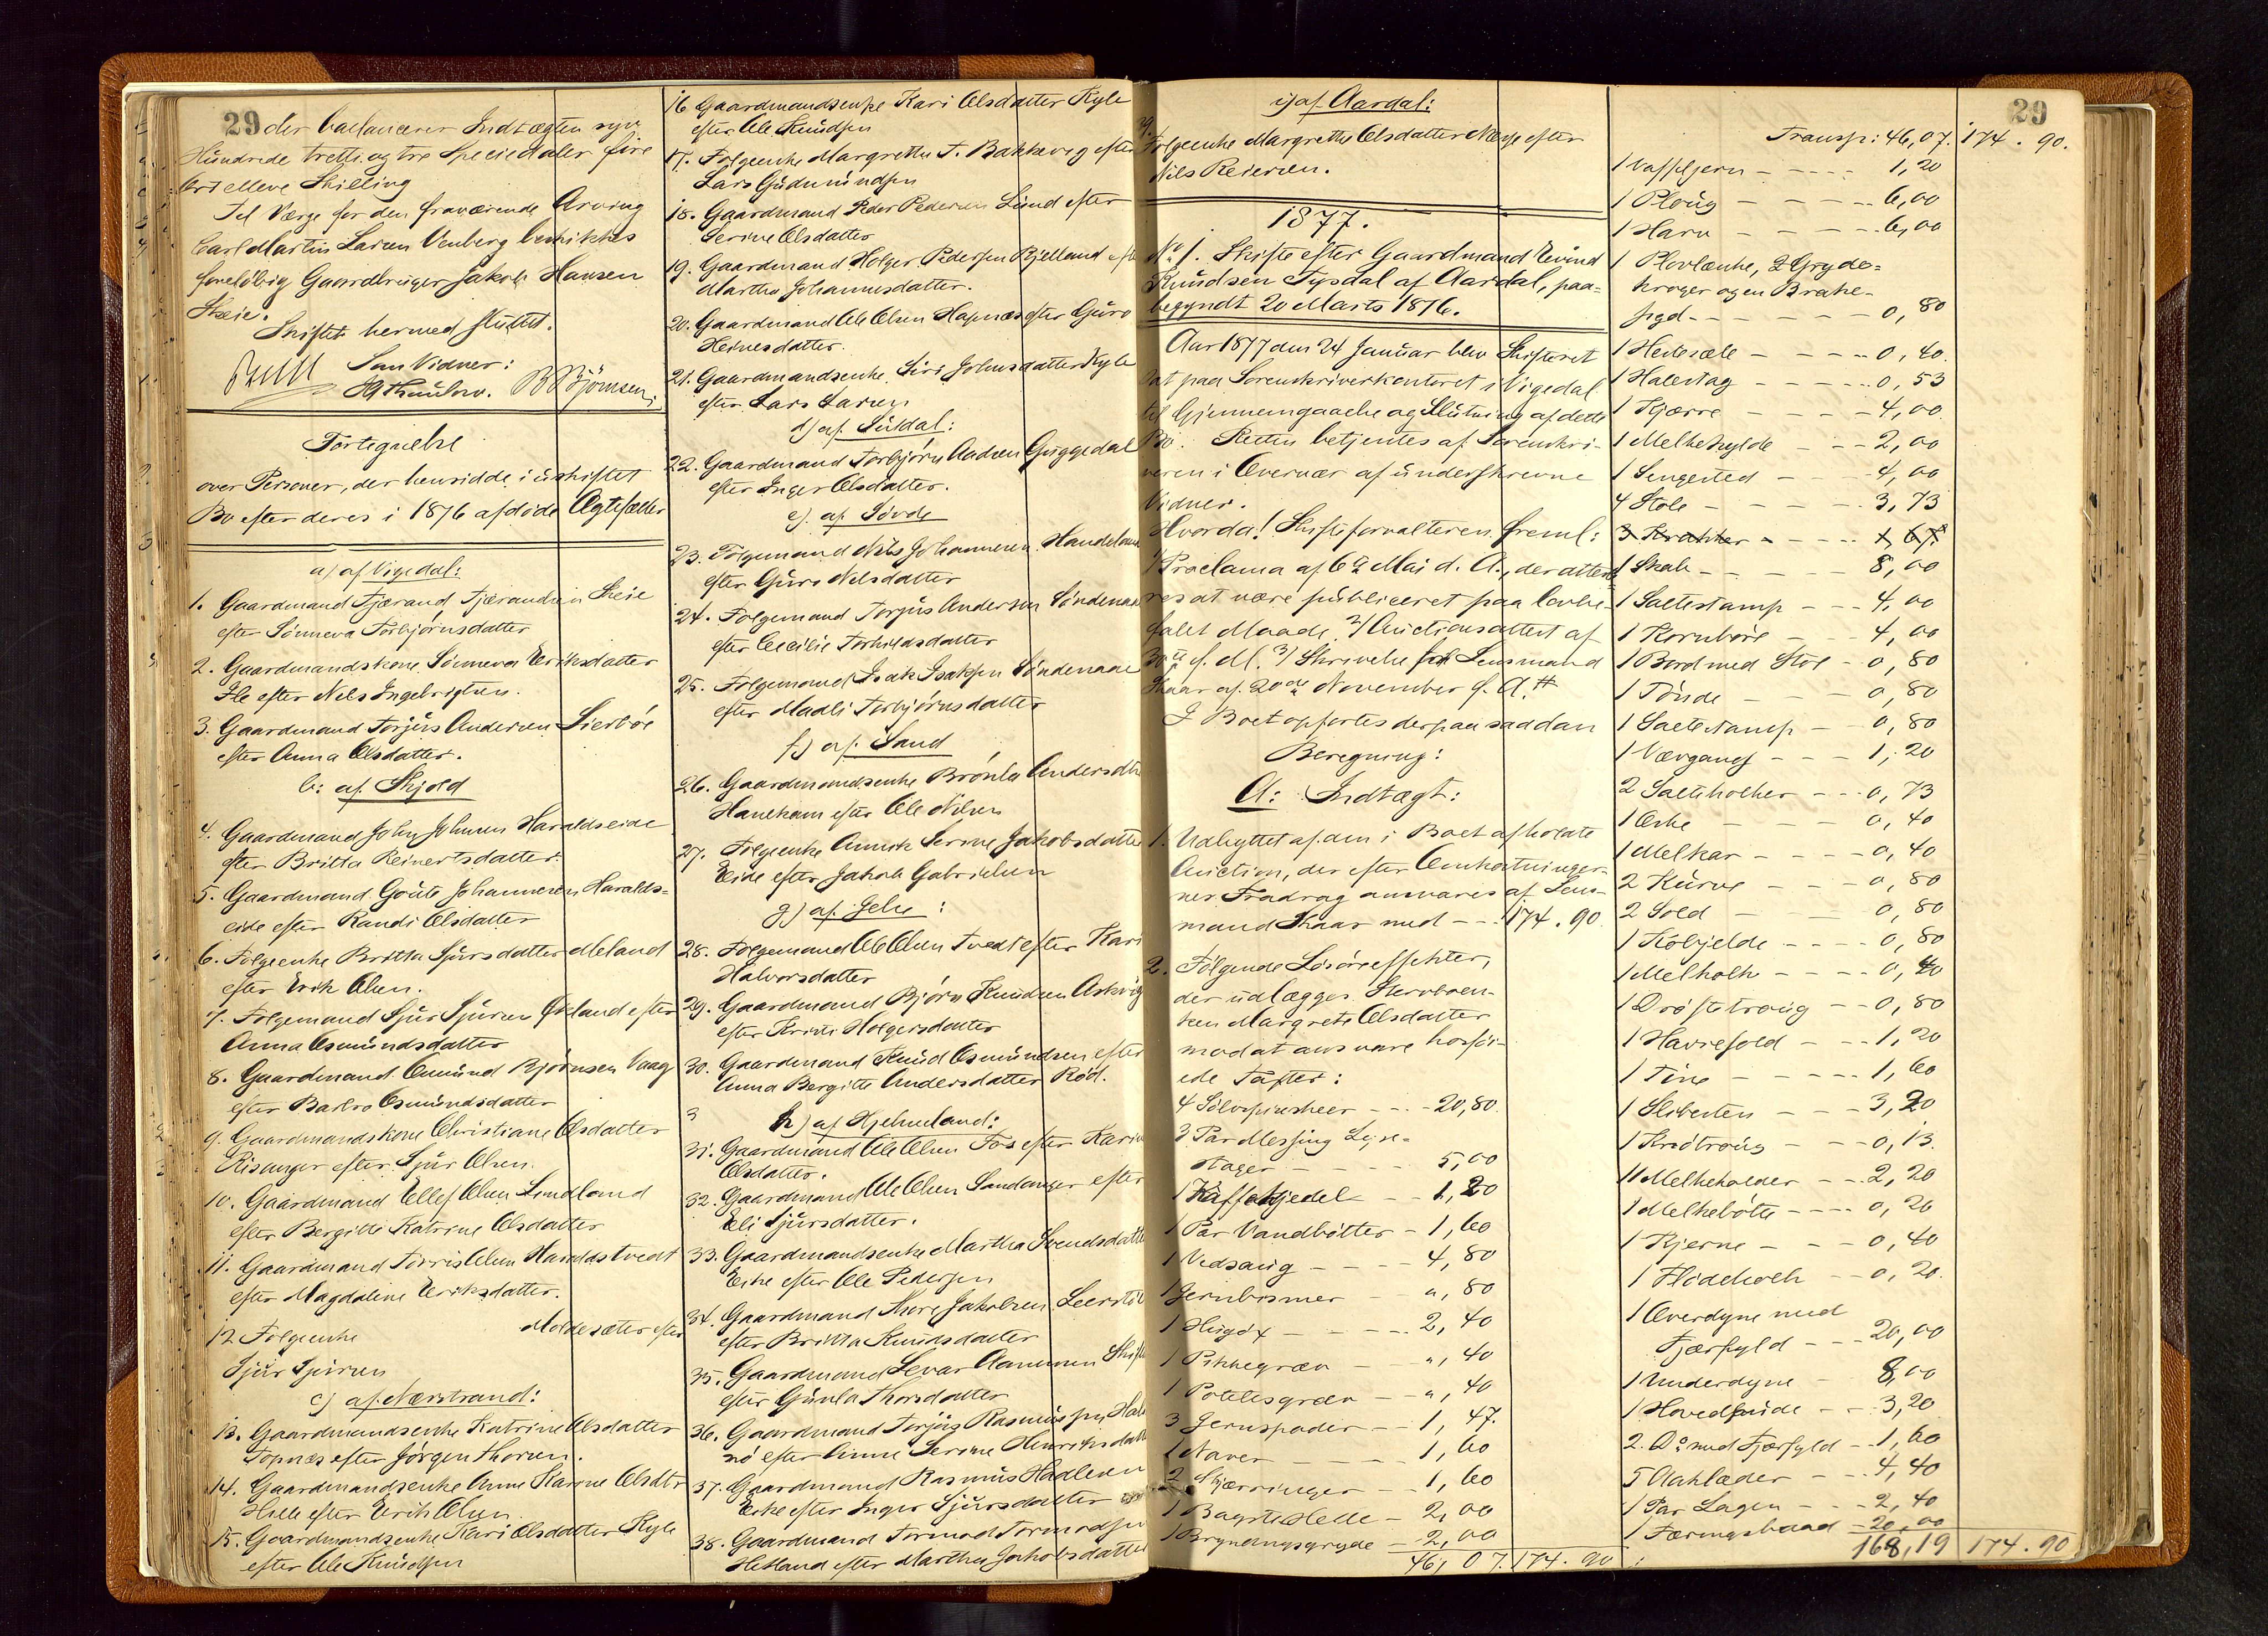 29 der balancerer Indtægten syv
Hundrede tretti og tre Speciedaler fire
Ort elleve Skilling
Til Værge for den fraværende Arving
Carl Martin Larsen Venberg beskikkes
foreløbig Gaardbruger Jakob Hansen
Skeie.
Skiftet hermed sluttet.
Som Vidner:
Fortegnelse
over Personer, der hensidde i uskiftet
Bo efter deres i 1876 afdøde Ægtefæller
a) af Vigedal:
1. Gaardmand Tjærand Tjærandsen Skeie
efter Sønneva Torbjørnsdatter
2. Gaardmandskone Sønneva Eriksdatter
Ile efter Nils Ingebrigtsen.
3. Gaardmand Torjus Andersen Lierbøe
efter Anna Olsdatter.
b: af Skjold
4. Gaardmand John Johnsen Haraldseide
efter Britta Reinertsdatter.
5. Gaardmand Goute Johannesen Haralds=
eide efter Randi Olsdatter
6. Folgeenke Britta Sjursdatter Meland
efter Erik Olsen.
7. Folgemand Sjur Sjursen Økland efter
Anna Osmundsdatter
8. Gaardmand Omund Bjørnsen Vaag
efter Barbro Osmundsdatter
9. Gaardmandskone Christiane Olsdatter
Risanger efter Sjur Olsen.
10. Gaardmand Ellef Olsen Lindland
efter Bergitte Katrine Olsdatter
11. Gaardmand Torris Olsen Haraldstvedt
efter Magdaline Eriksdatter.
12 Folgeenke Moldesæter efter
Sjur Sjursen
c) af Nærstrand:
13. Gaardmandsenke Katrine Olsdatter
Topnæs efter Jørgen Thorsen.
14. Gaardmandsenke Anne Karine Olsdtr
Hille efter Erik Olsen
15. Gaardmandsenke Kari Olsdatter Kyle
efter Ole Knudsen
16 Gaardmandsenke Kari Olsdatter Kyle
efter Ole Knudsen
17. Folgeenke Margrethe T. Bakkevig efter
Lars Gudmundsen
18. Gaardmand Peder Pedersen Lund efter
Serine Olsdatter
19. Gaardmand Holger Pedersen Bjelland efter
Martha Johannesdatter.
20. Gaardmand Ole Olsen Hapnæs efter Guro
Heinesdatter.
21. Gaardmandsenke Siri Johnsdatter Kyle
efter Lars Larsen
d) af Suldal:
22. Gaardmand Torbjørn Andsen Guggedal
efter Inger Olsdatter.
e). af Sövde
23. Folgemand Nils Johannesen Handeland
efter Guro Nilsdatter
24. Folgemand Torjus Andersen Söndenaa
efter Cecilie Torkildsdatter
25. Folgemand Isak Isaksen Söndenaa
efter Madli Torbjørnsdatter
f) af Sand
26. Gaardmandsenke Brönla Andersdtr
Hanekam efter Ole Nilsen
27. Folgeenke Anna Serine Jakobsdatter
Eide efter Jakob Gabrielsen
g) af Jelse:
28. Folgemand Ole Olsen Tvedt efter Kari
Halvorsdatter
29. Gaardmand Bjørn Knudsen Askvig
efter Kristi Holgersdatter
30. Gaardmand Knud Osmundsen efter
Anna Bergitte Andersdatter Röd.
h) af Hjelmeland:
31. Gaardmand Ole Olsen Fos efter Karin
Olsdatter.
32. Gaardmand Ole Olsen Sandanger efter
Eli Sjursdatter.
33. Gaardmandsenke Martha Svendsdatter
Eike efter Ole Pedersen
34. Gaardmand Thore Jakobsen Leerstöl
efter Britta Knudsdatter
35. Gaardmand Sevar Aamunsen
efter Gunla Thorsdatter
36. Gaardmand Torjus Rasmussen
efter Anne Serine Henriksdatter
37. Gaardmand Rasmus Hadlesen
Eike efter Inger Sjursdatter
38. Gaardmand Tormod Tormodsen
Hetland efter Martha Jakobsdatter
i) af Aardal:
39. Folgeenke Margrethe Olsdatter Næsse efter
Nils Reiersen.
1877.
No 1. Skifte efter Gaardmand Eivind
Knudsen Tysdal af Aardal, paa=
begyndt 20 Marts 1876.
Aar 1877 den 24 Januar blev Skifteret
sat paa Sorenskriverkontoret i Vigedal
til Gjennemgaaelse og Slutning af dette
Bo. Retten betjentes af Sorenskri-
veren i Overvær af underskrevne
Vidner.
Hvorda! Skifteforvalteren freml:
1/ Proclama af 6te Mai d. A., der attes
res at være publiceret paa lovbe-
falet Maade. 2/ Auctionsattest af
30te f. M. 3/ Skrivelse fra Lensmand
Skaar af 20de November f. A. #
I Boet opførtes derpaa saadan
Beregning:
A: Indtægt:
1. Udbyttet af den i Boet afholdte
Auction, der efter Omkostninger-
nes Fradrag ansvares af Lens-
mand Skaar med - - 174. 90.
2. Følgende Løsöreeffekter,
der udlægges Stervboen-
ken Margrete Olsdatter
mod at ansvare hosföi-
ede Taxter:
4 Sölvspiseskeer - - - 20,80.
3 Par Messing Lyse=
stager - - - - 5,00
1 Kaffekjedel - - 1,20
1 Par Vandbøtter - 1,60
1 Vedsaug - - - - 4,80
1 Jernbismer - - ", 80
1 Hugöx - - - - 2,40
1 Pikkegræv - - ", 40
1 Potetesgræv - - ", 40
3 Jernspader - - 1, 47.
1 Naver - - - 1, 60
2 Skjæringer - - 1, 60
1 Bagste Helle - 2,00
1 Brygningsgryde - 2,00
46, 07. 174. 90
29
Transp: 46,07. 174. 90.
1 Vaffeljern - - - - 1,20
1 Ploug - - - - 6,00
1 Harv - - - - 6,00
1 Plovlænke, 2 Gryde=
kroger og en Brake-
- - - - - 0,80
1 Hestesæle - - - - 0,40.
1 Halestag - - - - 0,53
1 Kjærre - - - - 4,00.
1 Melkehylde - - 2,00
1 Sengested - - - 4,00
4 Stole - - - - 3,73
3 Krakker - - - - 1,67
1 Skab - - - - 8,00
1 Saltestamp - - - 4,00
1 Kornböre - - - 4,00
1 Bord med Stol - 0,80
1 Tönde - - - 0,80
1 Saltestamp - - 0,80
1 Vævgang - - - 1,20
2 Salteholker - - - 0,73
1 Eske - - - - 0,40
1 Melkar - - - - 0,40
2 Kurve - - - - 0,80
2 Sold - - - - 0,80
1 Kobjelde - - - - 0,80
1 Melholk - - - - 0,40
1 Dröftetroug - - 0,80
1 Havresold - - - 1,20
1 Tine - - - - 1,60
1 Slibesten - - - 3,20
1 Brödtroug - - - 0,13.
11 Melkekolder - - - 2,20
1 Melkebötte - - - - 0,20
1 Kjerne - - - 0,40
1 Flödeholk - - 0,20.
1 Overdyne med
Fjærfyld - - - 20,00
1 Underdyne - 8,00
1 Hovedpude - - - 3,20
2. Do med Fjærfyld - - 1,60
5 Aaklæder - - - 4,40
1 Par Lagen - - - 2,40
1 Færingsbaad - 20,00
168,19 174. 90